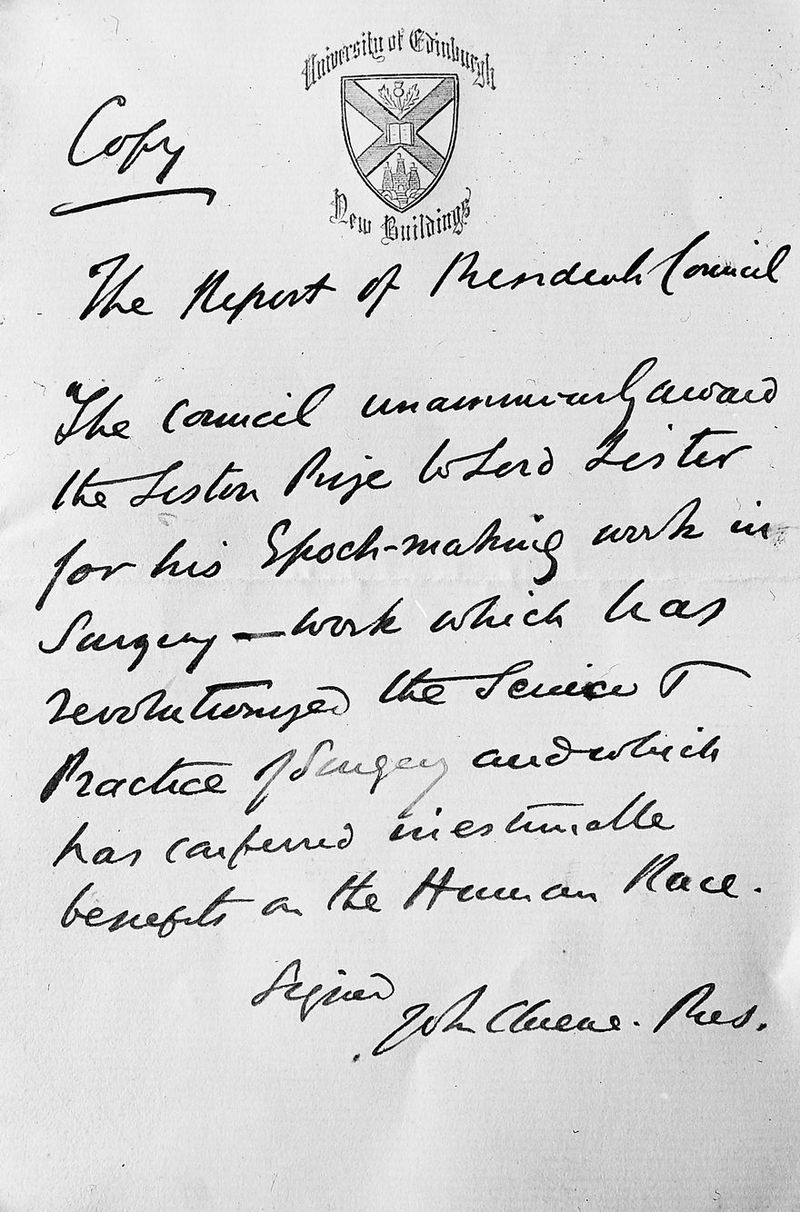 University of Edinburgh
New Buildings
Copy
The Report of President & Council
"The Council unanimously award
the Liston Prize to Lord Lister
for his Epoch-making work in
Surgery – work which has
revolutionized the Science &
Practice of Surgery and which
has conferred inestimable
benefits on the Human Race.
Signed
John Chiene. Pres.